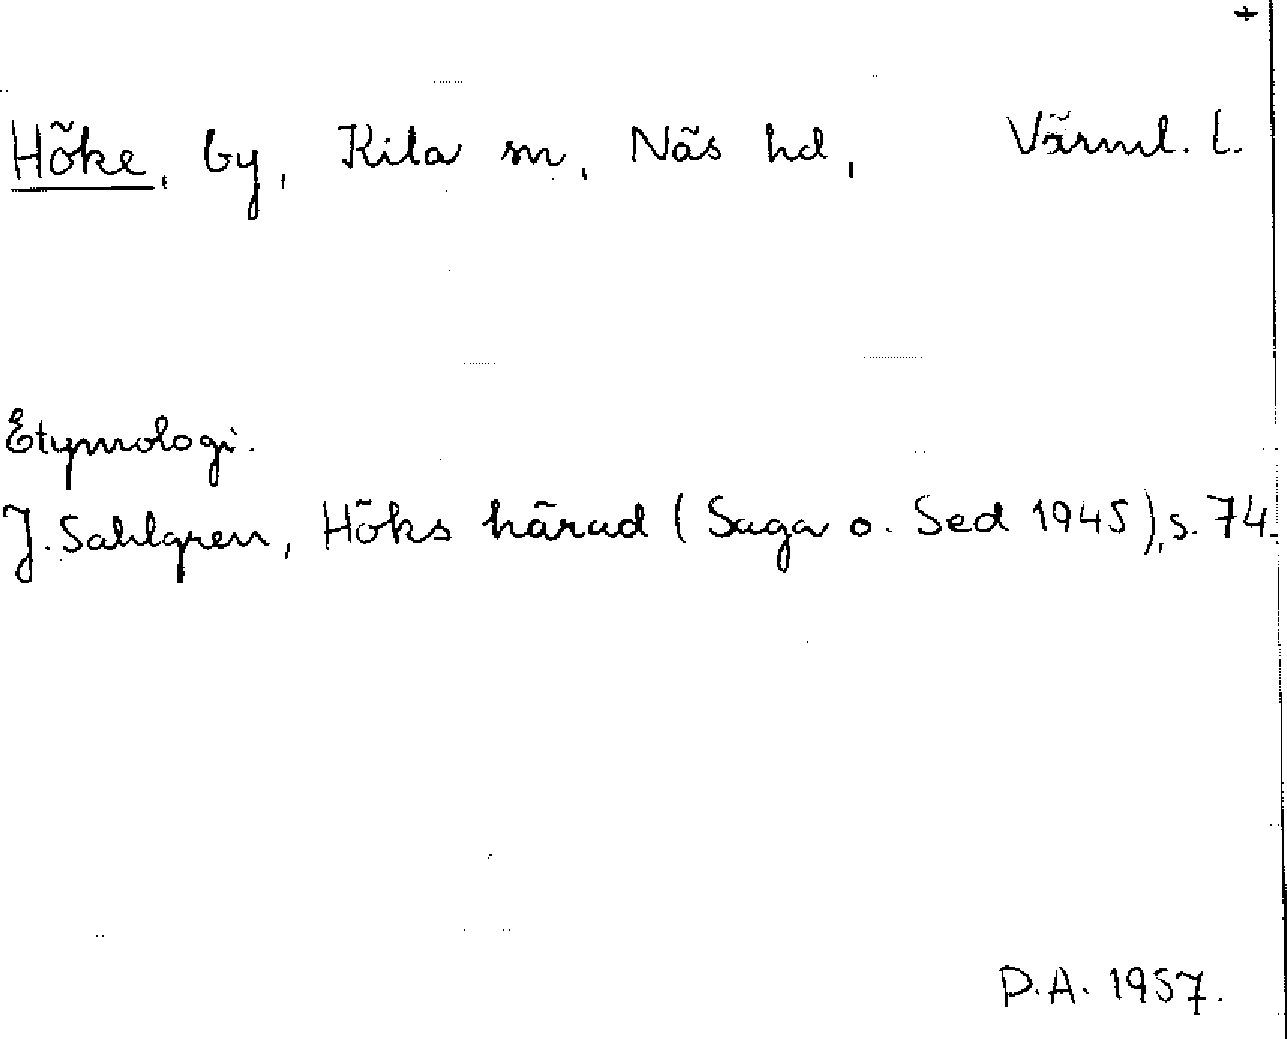 +
Höke, by, Kila sn, Näs hd, Värml. l.
Etymologi.
J. Sahlgren, Höks härad (Saga o. Sed 1945), s. 74.
D.A. 1957.